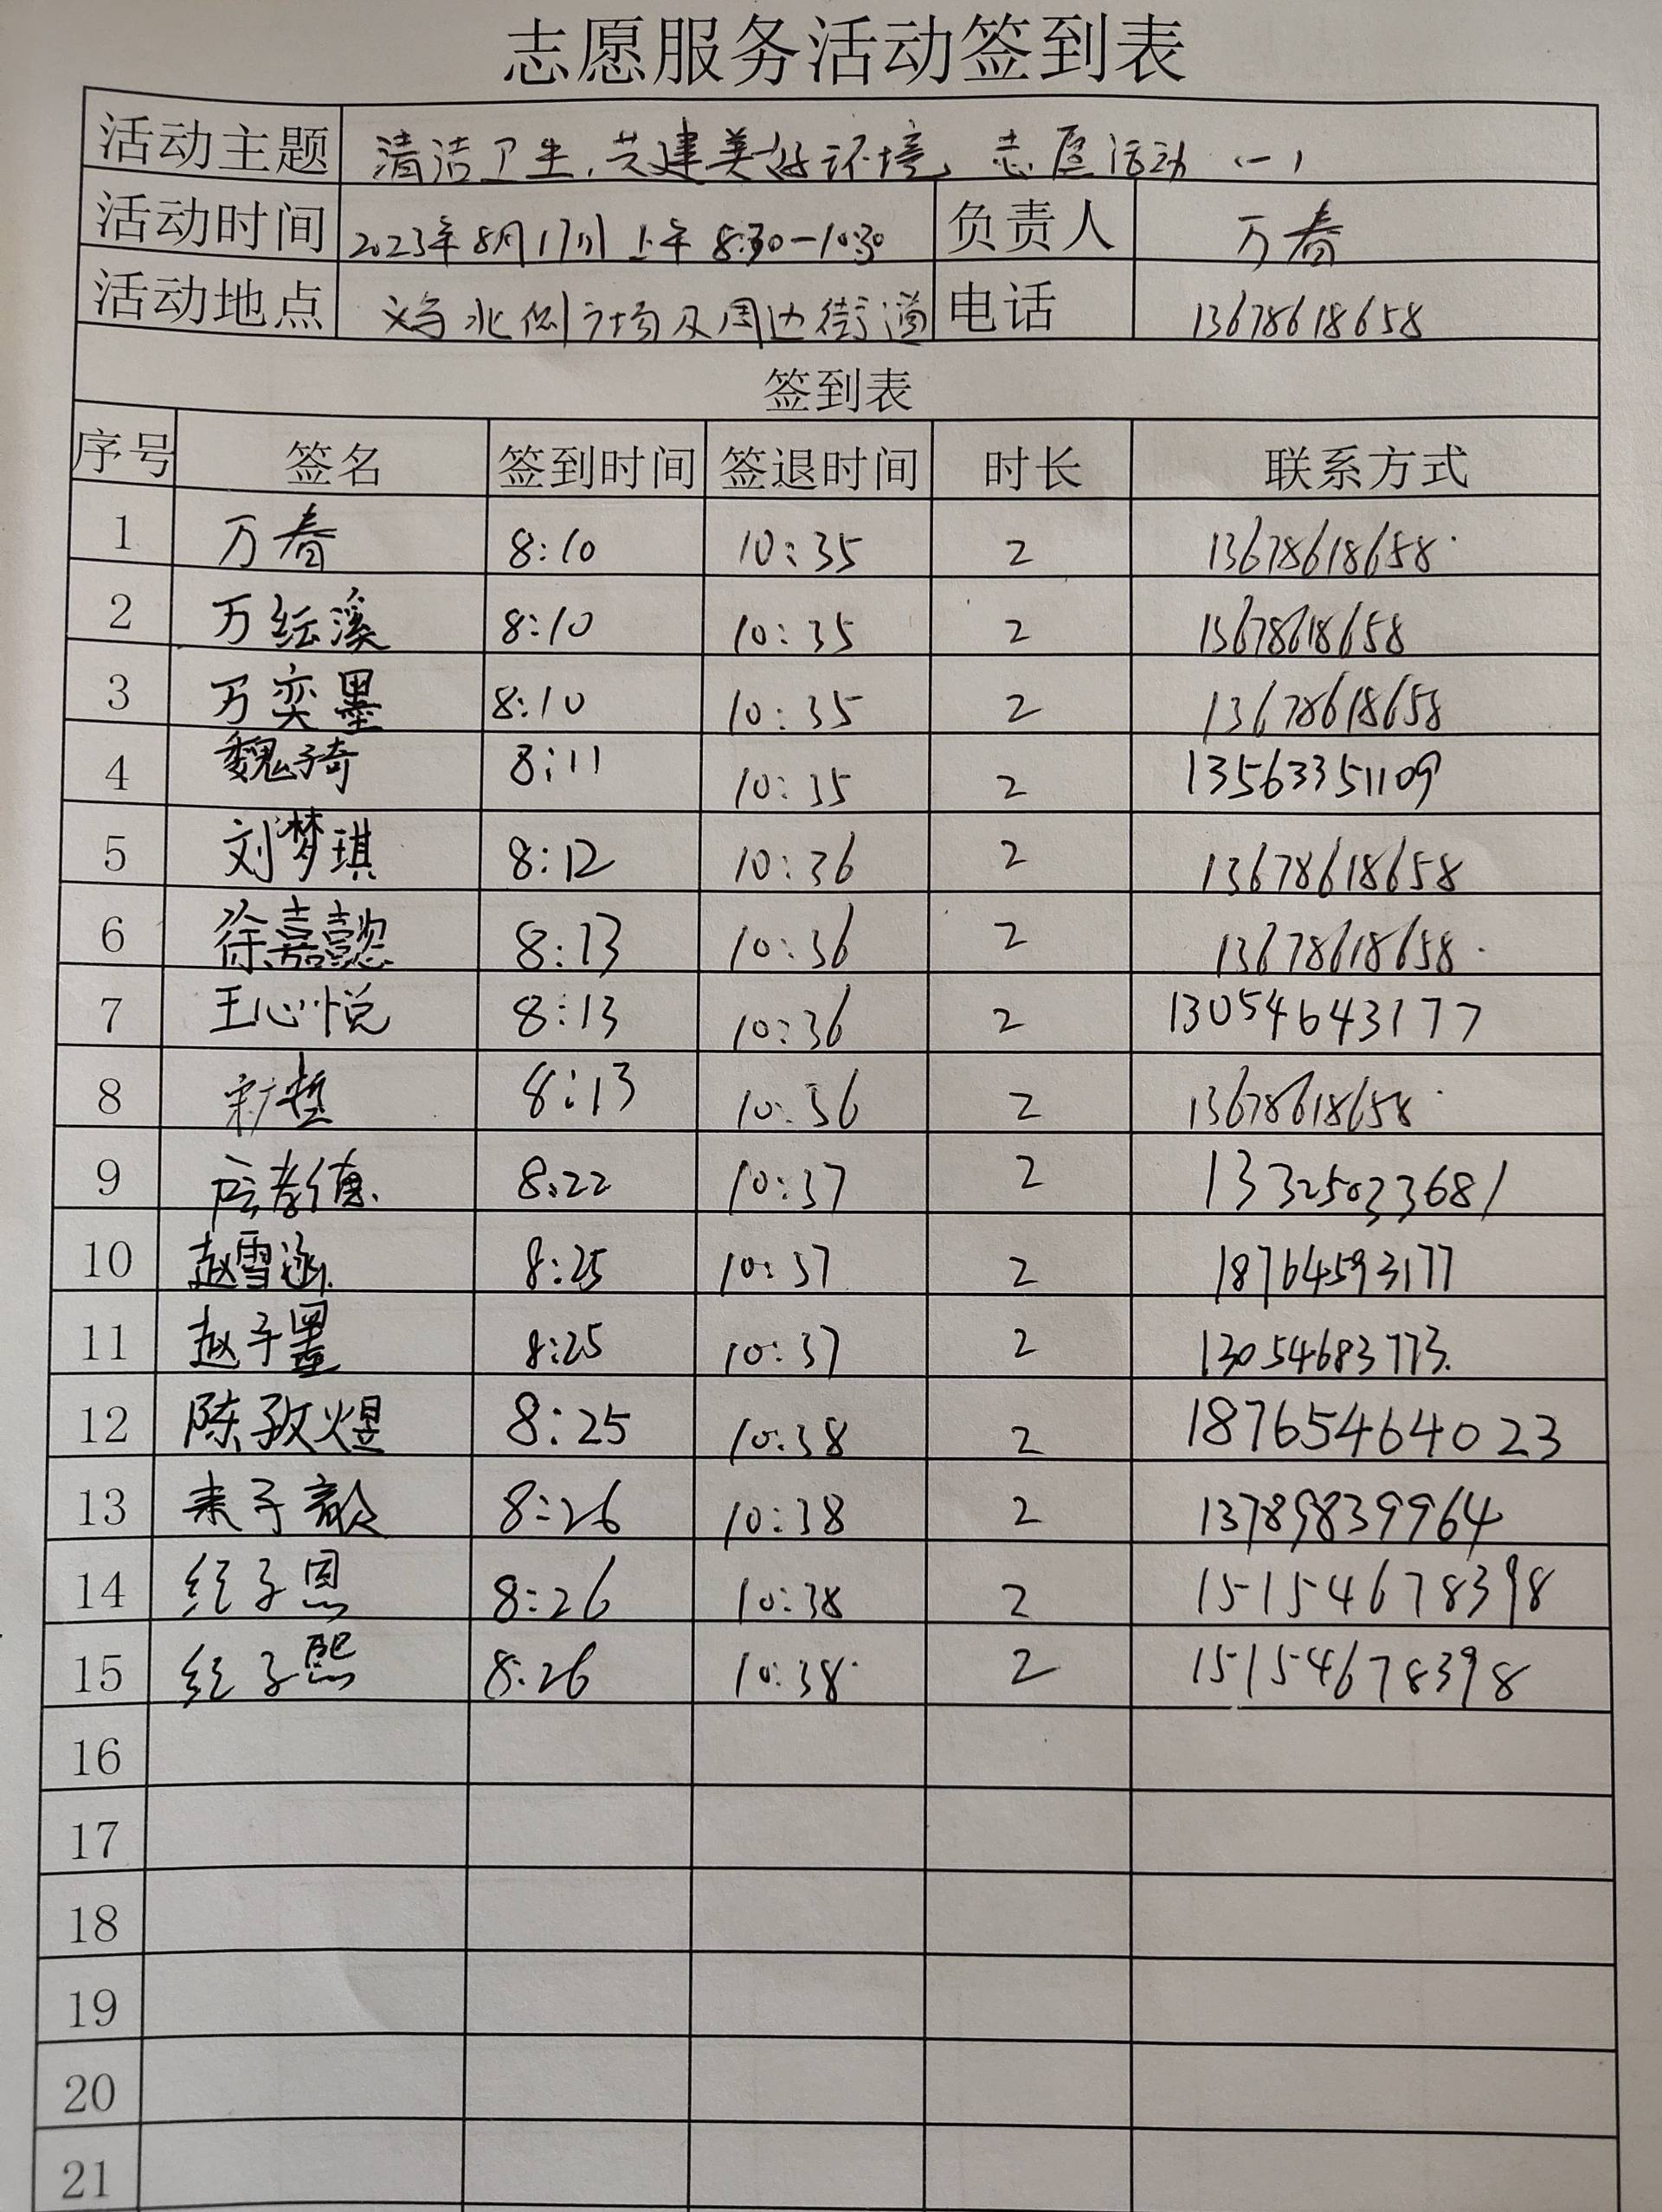 志愿服务活动签到表
活动主题 清洁卫生,共建美好环境 志愿活动(一)
活动时间 2023年8月17日 上午 8:30-10:30 负责人 万春
活动地点 义乌北侧广场及周边街道 电话 13678618658
签到表
序号 签名 签到时间 签退时间 时长 联系方式
1 万春 8:10 10:35 2 13678618658
2 万纭溪 8:10 10:35 2 13678618658
3 万奕墨 8:10 10:35 2 13678618658
4 魏子琦 8:11 10:35 2 13563351109
5 刘梦琪 8:12 10:36 2 13678618658
6 徐嘉懿 8:13 10:36 2 13678618658
7 王心悦 8:13 10:36 2 13054643177
8 8:13 10:36 2 13678618658
9 8:22 10:37 2 13325033681
10 赵雪涵 8:25 10:37 2 18764593177
11 赵子墨 8:25 10:37 2 13054683773
12 陈孜煜 8:25 10:38 2 18765464023
13 子歆 8:26 10:38 2 13789839964
14 子恩 8:26 10:38 2 15154678398
15 子熙 8:26 10:38 2 15154678398
16
17
18
19
20
21